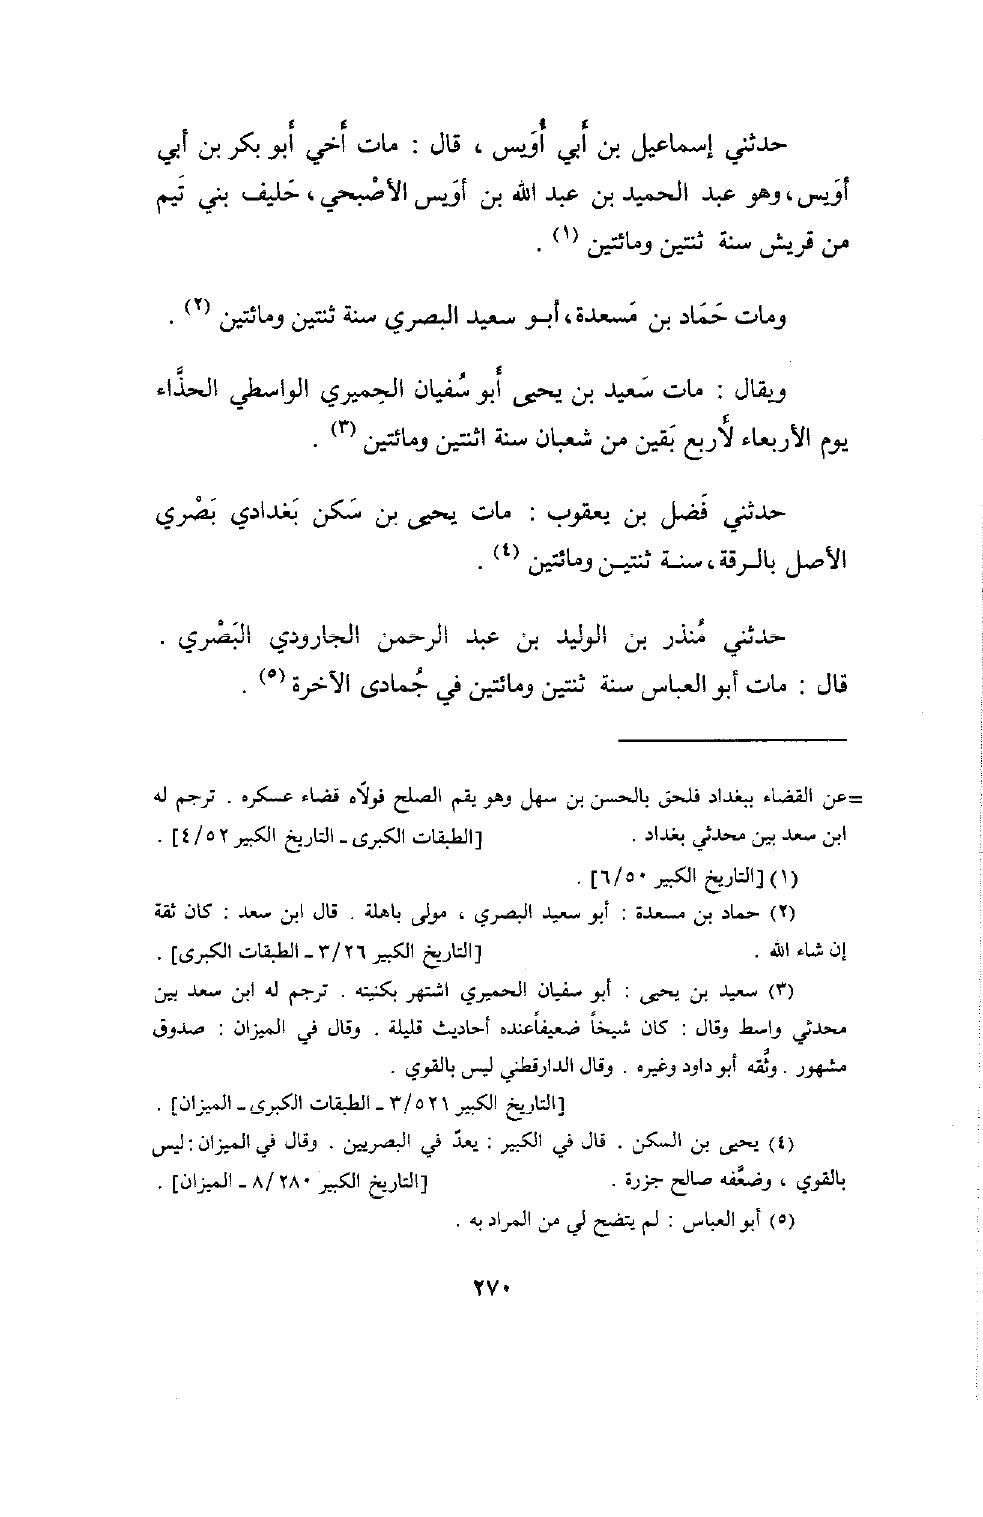 حدثني إسماعيل بن أَبي أُوَيس ، قال : مات أَخي أَبو بكر بن أبي
أوَيس، وهو عبد الحميد بن عبد الله بن أوَيس الأصْبحي، حَليف بني تَيم
من قريش سنة ثنتين ومائتين (١) .
ومات حَمّاد بن مَسعدة، أبو سعيد البصري سنة ثنتين ومائتين (٢) .
ويقال : مات سَعيد بن يحيى أَبو سُفيان الحِميري الواسطي الحذَّاء
يوم الأربعاء لأَربع بَقين من شعبان سنة اثنتين ومائتين (٣) .
حدثني فَضل بن يعقوب : مات يحيى بن سَكن بَغدادي بَصْري
الأصل بالرقة، سنة ثنتين ومائتين (٤) .
حدثني مُنذر بن الوليد بن عبد الرحمن الجارودي البَصْري .
قال : مات أبو العباس سنة ثنتين ومائتين في جُمادى الآخرة (٥) .
=عن القضاء ببغداد فلحق بالحسن بن سهل وهو يقم الصلح فولاّه قضاء عسكره . ترجم له
ابن سعد بين محدثي بغداد . [الطبقات الكبرى ـ التاريخ الكبير ٤/٥٢] .
(١) [التاريخ الكبير ٦/٥٠] .
(٢) حماد بن مسعدة : أبو سعيد البصري ، مولى باهلة . قال ابن سعد : كان ثقة
إن شاء الله . [التاريخ الكبير ٣/٢٦ ـ الطبقات الكبرى] .
(٣) سعيد بن يحيى : أبو سفيان الحميري اشتهر بكنيته . ترجم له ابن سعد بين
محدثي واسط وقال : كان شيخاً ضعيفاًعنده أحاديث قليلة . وقال في الميزان : صدوق
مشهور . وثَّقه أبو داود وغيره . وقال الدارقطني ليس بالقوي .
[التاريخ الكبير ٣/٥٢١ ـ الطبقات الكبرى ـ الميزان] .
(٤) يحيى بن السكن . قال في الكبير : يعدّ في البصريين . وقال في الميزان : ليس
بالقوي ، وضعَّفه صالح جزرة . [التاريخ الكبير ٨/٢٨٠ ـ الميزان] .
(٥) أبو العباس : لم يتضح لي من المراد به .
٢٧٠